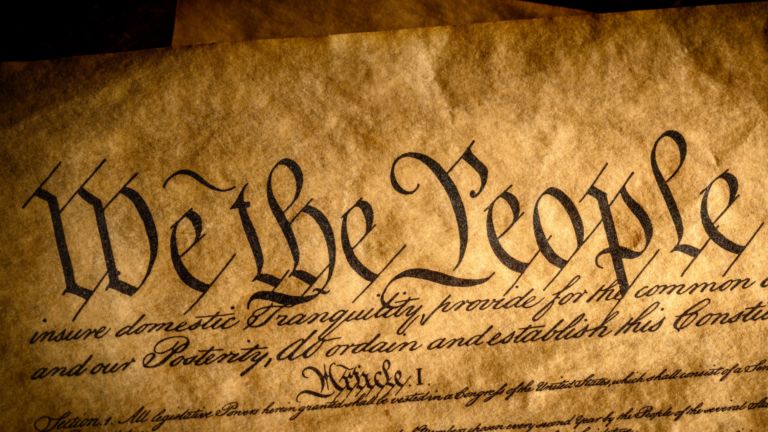 We the People
insure domestic Tranquility, provide for the common
and our Posterity, do ordain and establish this Constitu
Article. I.
Section. 1. All legislative Powers herein granted shall be vested in a Congress of the United States, which shall consist of a Sen
chosen every second Year by the People of the several States